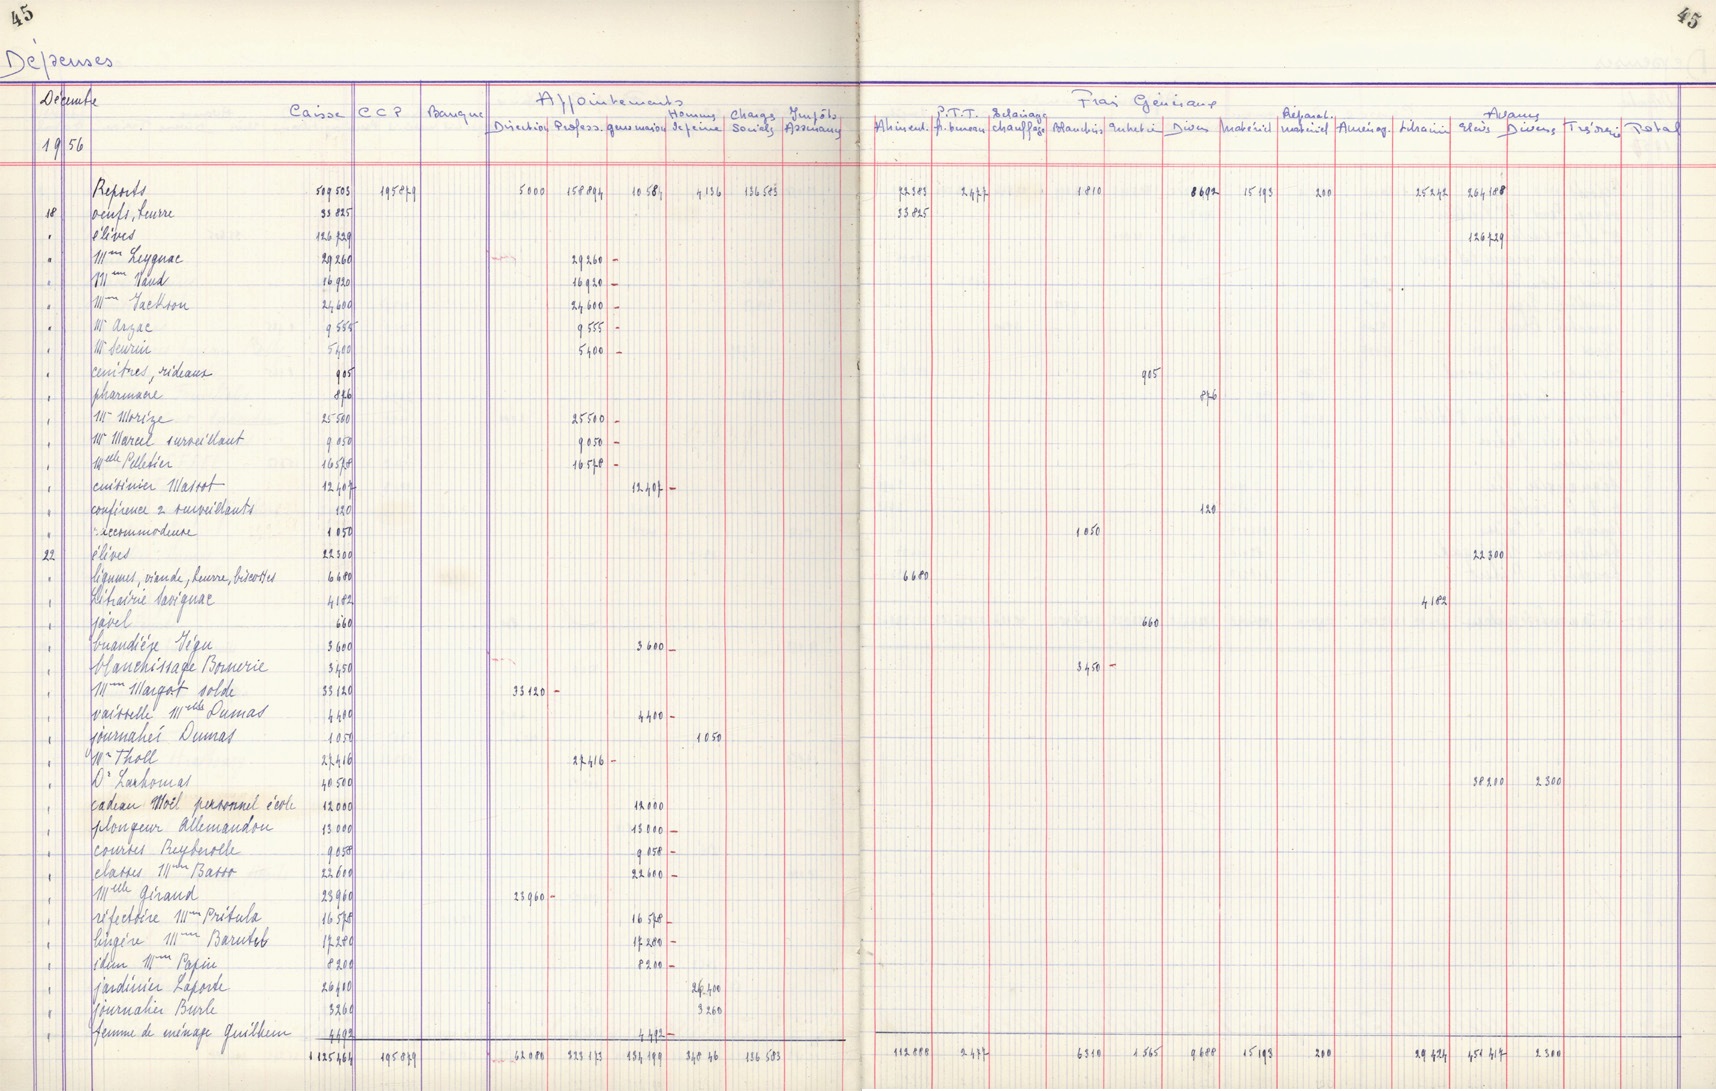 45 45
Dépenses
Décembre
1956
Caisse CCP Banque Appointements Frais Généraux
Direction Profess. gens maison Hommes de peine Charges Sociales Impôts Assurances
Aliment. P.T.T. f. bureau Eclairage chauffage Blanchis. Entretien Divers Matériel Réparat. matériel Aménag. Librairie Avances Elèves Divers Trésorerie Total
Reports 509 503 195 879 5 000 158 894 10 584 4 136 136 583 72 383 2 477 1 810 8 692 15 193 200 25 242 264 188
18 oeufs, beurre 33 825 33 825
" élèves 126 729 126 729
" Mme Leygnac 29 260 29 260 -
" Mme Naud 16 920 16 920 -
" Mme Jackson 24 600 24 600 -
" Mr Arzac 9 555 9 555 -
" Mr Seurin 5 400 5 400 -
" ceintres, rideaux 905 905
" pharmacie 876 876
" Mr Morize 25 500 25 500 -
" Mr Marcel surveillant 9 050 9 050 -
" Melle Pelletier 16 578 16 578 -
" cuisinier Massot 12 407 12 407 -
" conférence 2 surveillants 120 120
" raccommodeuse 1 050 1 050
22 élèves 22 300 22 300
" légumes, viande, beurre, biscottes 6 680 6 680
" Librairie Savignac 4 182 4 182
" javel 660 660
" buandière Jégu 3 600 3 600 -
" blanchissage Bornerie 3 450 3 450 -
" Mme Margot solde 33 120 33 120 -
" vaisselle Melle Dumas 4 400 4 400 -
" journalier Dumas 1 050 1 050
" Mr Tholl 27 416 27 416 -
" Dr Larhomas 40 500 38 200 2 300
" cadeau Noël personnel école 12 000 12 000
" plongeur Allemandou 13 000 13 000 -
" courses Reyberolle 9 058 9 058 -
" classes Mme Basso 22 600 22 600 -
" Melle Giraud 23 960 23 960 -
" réfectoire Mme Pritula 16 578 16 578 -
" lingère Mme Barutel 17 280 17 280 -
" idem Mme Papin 8 200 8 200 -
" jardinier Laporte 26 400 26 400
" journalier Burle 3 260 3 260
" femme de ménage Guilhem 4 492 4 492 -
1 125 464 195 879 62 080 323 173 134 199 348 46 136 583 112 888 2 477 6 310 1 565 9 688 15 193 200 29 424 451 417 2 300